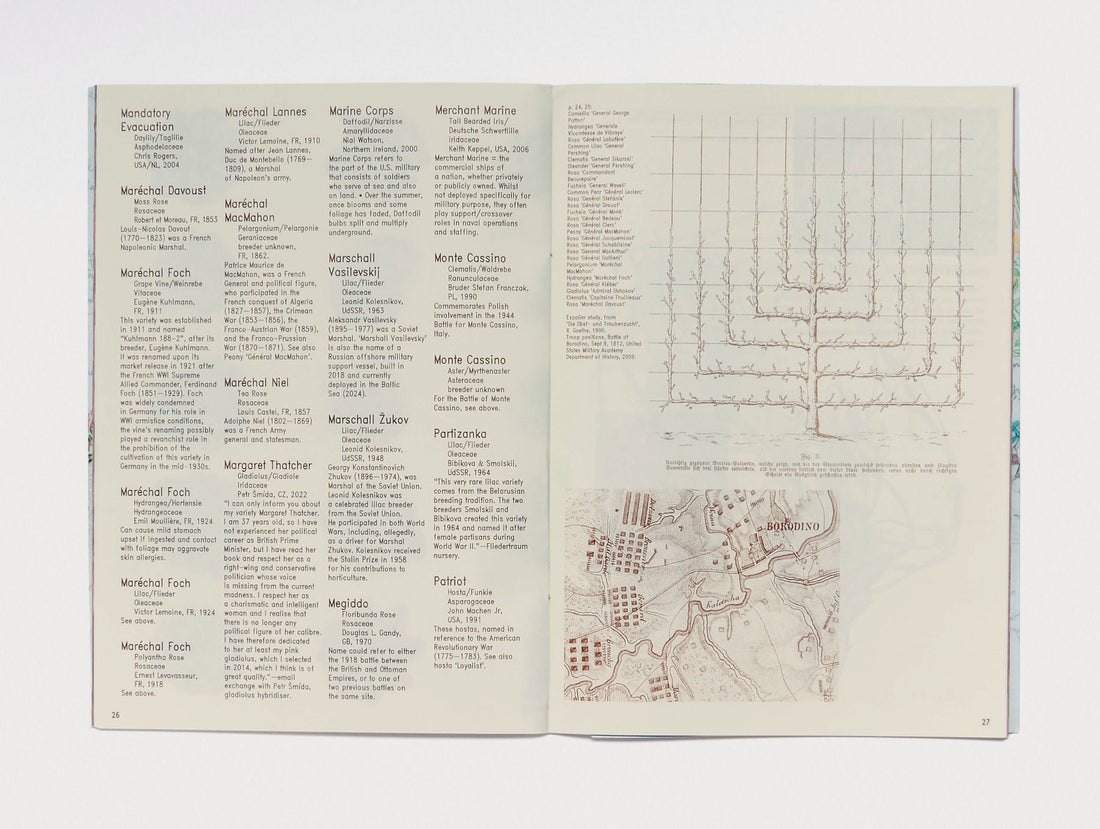 Mandatory
Evacuation
Daylily/Taglilie
Asphodelaceae
Chris Rogers,
USA/NL, 2004
Maréchal Davoust
Moss Rose
Rosaceae
Robert et Moreau, FR, 1853
Louis-Nicolas Davout
(1770–1823) was a French
Napoleonic Marshal.
Maréchal Foch
Grape Vine/Weinrebe
Vitaceae
Eugène Kuhlmann,
FR, 1911
This variety was established
in 1911 and named
“Kuhlmann 188-2”, after its
breeder, Eugène Kuhlmann.
It was renamed upon its
market release in 1921 after
the French WWI Supreme
Allied Commander, Ferdinand
Foch (1851–1929). Foch
was widely condemned
in Germany for his role in
WWI armistice conditions,
the vine's renaming possibly
played a revanchist role in
the prohibition of the
cultivation of this variety in
Germany in the mid-1930s.
Maréchal Foch
Hydrangea/Hortensie
Hydrangeaceae
Emil Moullière, FR, 1924
Can cause mild stomach
upset if ingested and contact
with foliage may aggravate
skin allergies.
Maréchal Foch
Lilac/Flieder
Oleaceae
Victor Lemoine, FR, 1924
See above.
Maréchal Foch
Polyantha Rose
Rosaceae
Ernest Levavasseur,
FR, 1918
See above.
26
Maréchal Lannes
Lilac/Flieder
Oleaceae
Victor Lemoine, FR, 1910
Named after Jean Lannes,
Duc de Montebello (1769–
1809), a Marshal
of Napoleon's army.
Maréchal
MacMahon
Pelargonium/Pelargonie
Geraniaceae
breeder unknown,
FR, 1862.
Patrice Maurice de
MacMahon, was a French
General and political figure,
who participated in the
French conquest of Algeria
(1827–1857), the Crimean
War (1853–1856), the
Franco-Austrian War (1859),
and the Franco-Prussian
War (1870–1871). See also
Peony ‘Général MacMahon’.
Maréchal Niel
Tea Rose
Rosaceae
Louis Castel, FR, 1857
Adolphe Niel (1802–1869)
was a French Army
general and statesman.
Margaret Thatcher
Gladiolus/Gladiole
Iridaceae
Petr Šmída, CZ, 2022
“I can only inform you about
my variety Margaret Thatcher.
I am 37 years old, so I have
not experienced her political
career as British Prime
Minister, but I have read her
book and respect her as a
right-wing and conservative
politician whose voice
is missing from the current
madness. I respect her as
a charismatic and intelligent
woman and I realise that
there is no longer any
political figure of her calibre.
I have therefore dedicated
to her at least my pink
gladiolus, which I selected
in 2014, which I think is of
great quality.”–email
exchange with Petr Šmída,
gladiolus hybridiser.
Marine Corps
Daffodil/Narzisse
Amaryllidaceae
Nial Watson,
Northern Ireland, 2000
Marine Corps refers to
the part of the U.S. military
that consists of soldiers
who serve at sea and also
on land. • Over the summer,
once blooms and some
foliage has faded, Daffodil
bulbs split and multiply
underground.
Marschall
Vasilevskij
Lilac/Flieder
Oleaceae
Leonid Kolesnikov,
UdSSR, 1963
Aleksandr Vasilevsky
(1895–1977) was a Soviet
Marshal. ‘Marshall Vasilevsky’
is also the name of a
Russian offshore military
support vessel, built in
2018 and currently
deployed in the Baltic
Sea (2024).
Marschall Žukov
Lilac/Flieder
Oleaceae
Leonid Kolesnikov,
UdSSR, 1948
Georgy Konstantinovich
Zhukov (1896–1974), was
Marshal of the Soviet Union.
Leonid Kolesnikov was
a celebrated lilac breeder
from the Soviet Union.
He participated in both World
Wars, including, allegedly,
as a driver for Marshal
Zhukov. Kolesnikov received
the Stalin Prize in 1958
for his contributions to
horticulture.
Megiddo
Floribunda Rose
Rosaceae
Douglas L. Gandy,
GB, 1970
Name could refer to either
the 1918 battle between
the British and Ottoman
Empires, or to one of
two previous battles on
the same site.
Merchant Marine
Tall Bearded Iris/
Deutsche Schwertlilie
Iridaceae
Keith Keppel, USA, 2006
Merchant Marine = the
commercial ships of
a nation, whether privately
or publicly owned. Whilst
not deployed specifically for
military purpose, they often
play support/crossover
roles in naval operations
and staffing.
Monte Cassino
Clematis/Waldrebe
Ranunculaceae
Bruder Stefan Franczak,
PL, 1990
Commemorates Polish
involvement in the 1944
Battle for Monte Cassino,
Italy.
Monte Cassino
Aster/Myrthenaster
Asteraceae
breeder unknown
For the Battle of Monte
Cassino, see above.
Partizanka
Lilac/Flieder
Oleaceae
Bibikova & Smolskii,
UdSSR, 1964
“This very rare lilac variety
comes from the Belarusian
breeding tradition. The two
breeders Smolskii and
Bibikova created this variety
in 1964 and named it after
female partisans during
World War II.”–Fliedertraum
nursery.
Patriot
Hosta/Funkie
Asparagaceae
John Machen Jr,
USA, 1991
These hostas, named in
reference to the American
Revolutionary War
(1775–1783). See also
hosta ‘Loyalist’.
p. 24, 25:
Camellia ‘General George
Patton’
Hydrangea ‘Generale
Vicomtesse de Vibraye’
Rosa ‘Général Labutère’
Common Lilac ‘General
Pershing’
Clematis ‘General Sikorski’
Oleander ‘General Pershing’
Rosa ‘Commandant
Beaurepaire’
Fuchsia ‘General Wavell’
Common Pear ‘Général Leclerc’
Rosa ‘Général Stefánik’
Rosa ‘Général Drouot’
Fuchsia ‘Général Monk’
Rosa ‘Général Bedeau’
Rosa ‘Général Clerc’
Peony ‘Général MacMahon’
Rosa ‘Général Jacqueminot’
Rosa ‘Général Schablikine’
Rosa ‘General MacArthur’
Rosa ‘Général Galliéni’
Pelargonium ‘Maréchal
MacMahon’
Hydrangea ‘Maréchal Foch’
Rosa ‘Général Kléber’
Gladiolus ‘Admiral Ushakov’
Clematis ‘Capitaine Thuilleaux’
Rosa ‘Maréchal Davoust’
Espalier study, from
‘Die Obst- und Traubenzucht’,
R. Goethe, 1900.
Troop positions, Battle of
Borodino, Sept 9, 1812, United
States Military Academy
Department of History, 2009.
Fig. 3.
BORODINO
Kalotcha
27